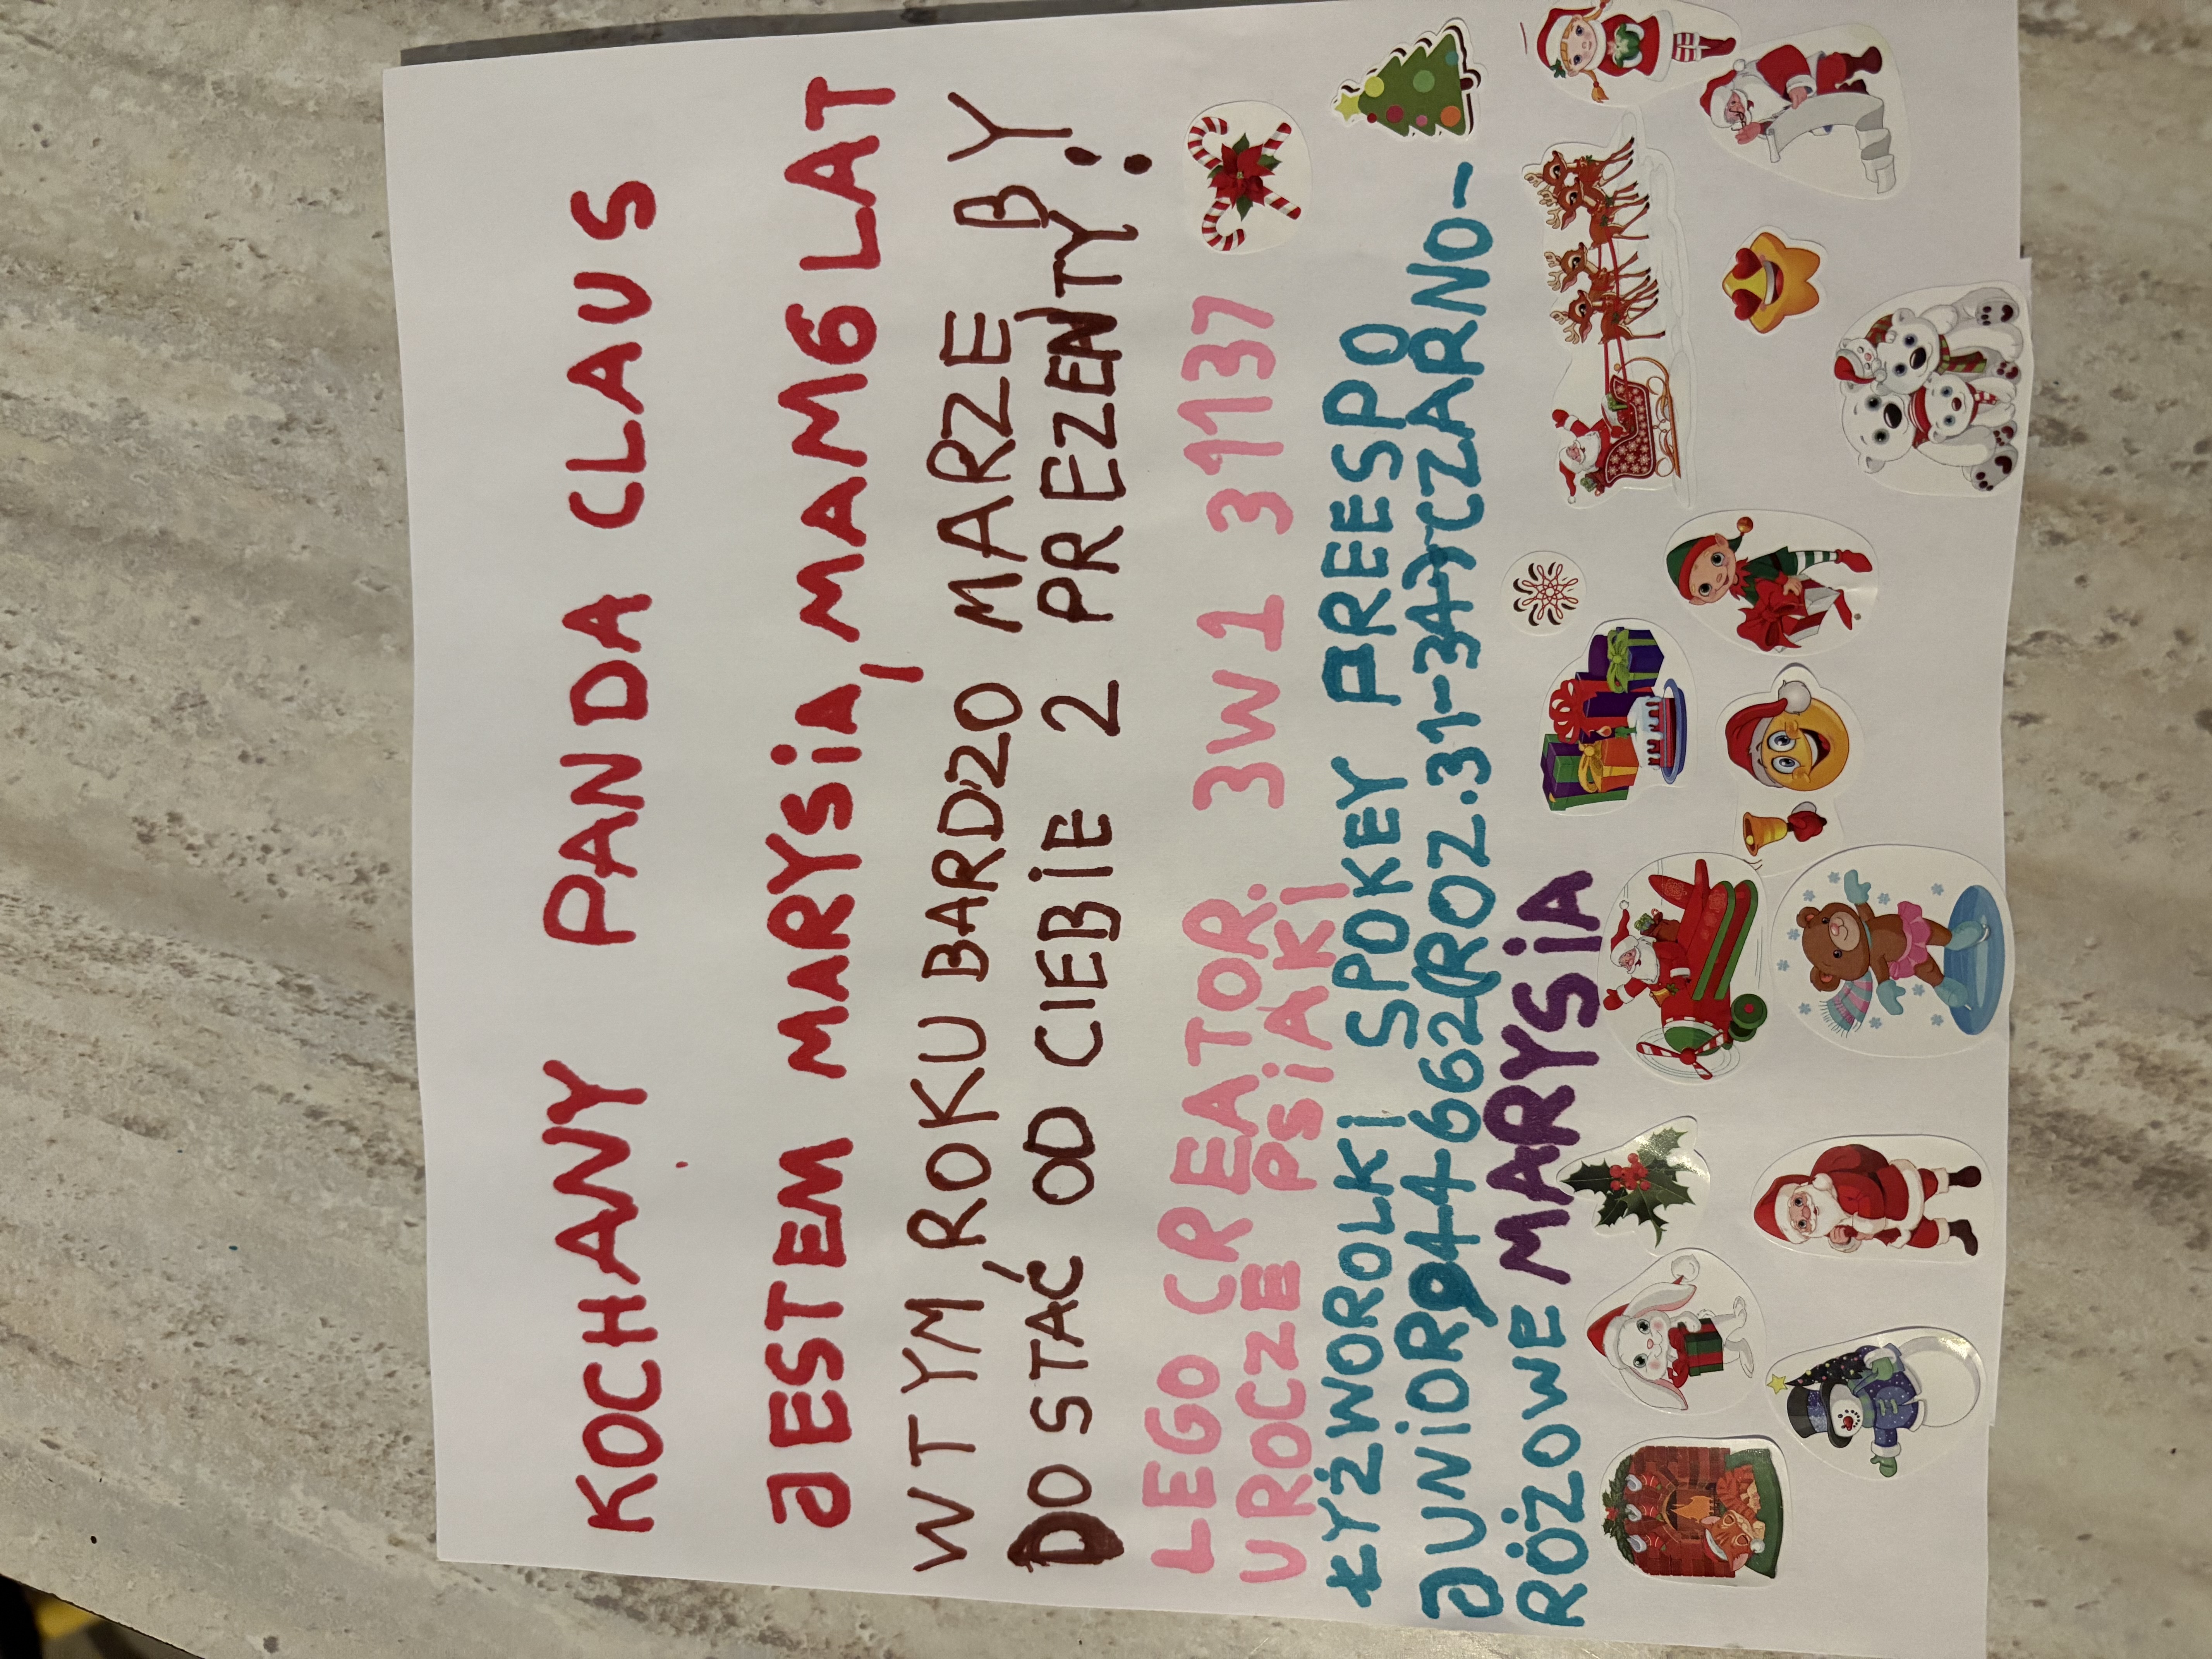 KOCHANY PANDA CLAUS
JESTEM MARYSiA, MAM 6 LAT
W TYM ROKU BARDZO MARZE BY
DOSTAĆ OD CIEBiE 2 PREZENTY:
LEGO CREATOR. 3W1 31137
UROCZE PSiAKi
ŁYŻWOROLKI SPOKEY PREESPO
JUNiOR 944662(ROZ.31-34)CZARNO-
RÓŻOWE MARYSiA